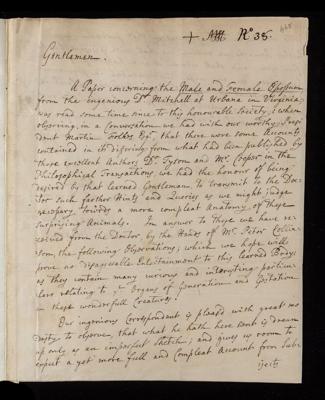 + Nº 38.
Gentlemen.
A Paper concerning the Male and Female Opossum
from the ingenious Dr. Mitchell at Urbana in Virginia
was read some time since to this honourable Society; & when
observing, in a Conversation had with our worthy Presi-
dent Martin Folkes Esqr. that there were some Accounts
contained in it differing from what had been published by
those excellent Authors Dr. Tyson and Mr. Cowper in the
Philosophical Transactions, we had the honour of being
desired by that learned Gentleman, to transmit to the Doc-
tor such farther Hints and Queries as we might judge
necessary towards a more compleat Anatomy of these
surprizing Animals. In answer to those we have re-
ceived from the Doctor, by the Hands of Mr. Peter Collin-
son, the following Observations; which we hope will
prove no disagreeable Entertainment to this learned Body;
as they contain many curious and interesting particu-
lars relating to ye. Organs of Generation and Gestation
in these wonderful Creatures.
Our ingenious Correspondent is pleas'd with great mo
desty to observe, that what he hath here sent is drawn
up only as an imperfect Sketch; and gives us room to
expect a yet more full and compleat Account from Sub-
jects